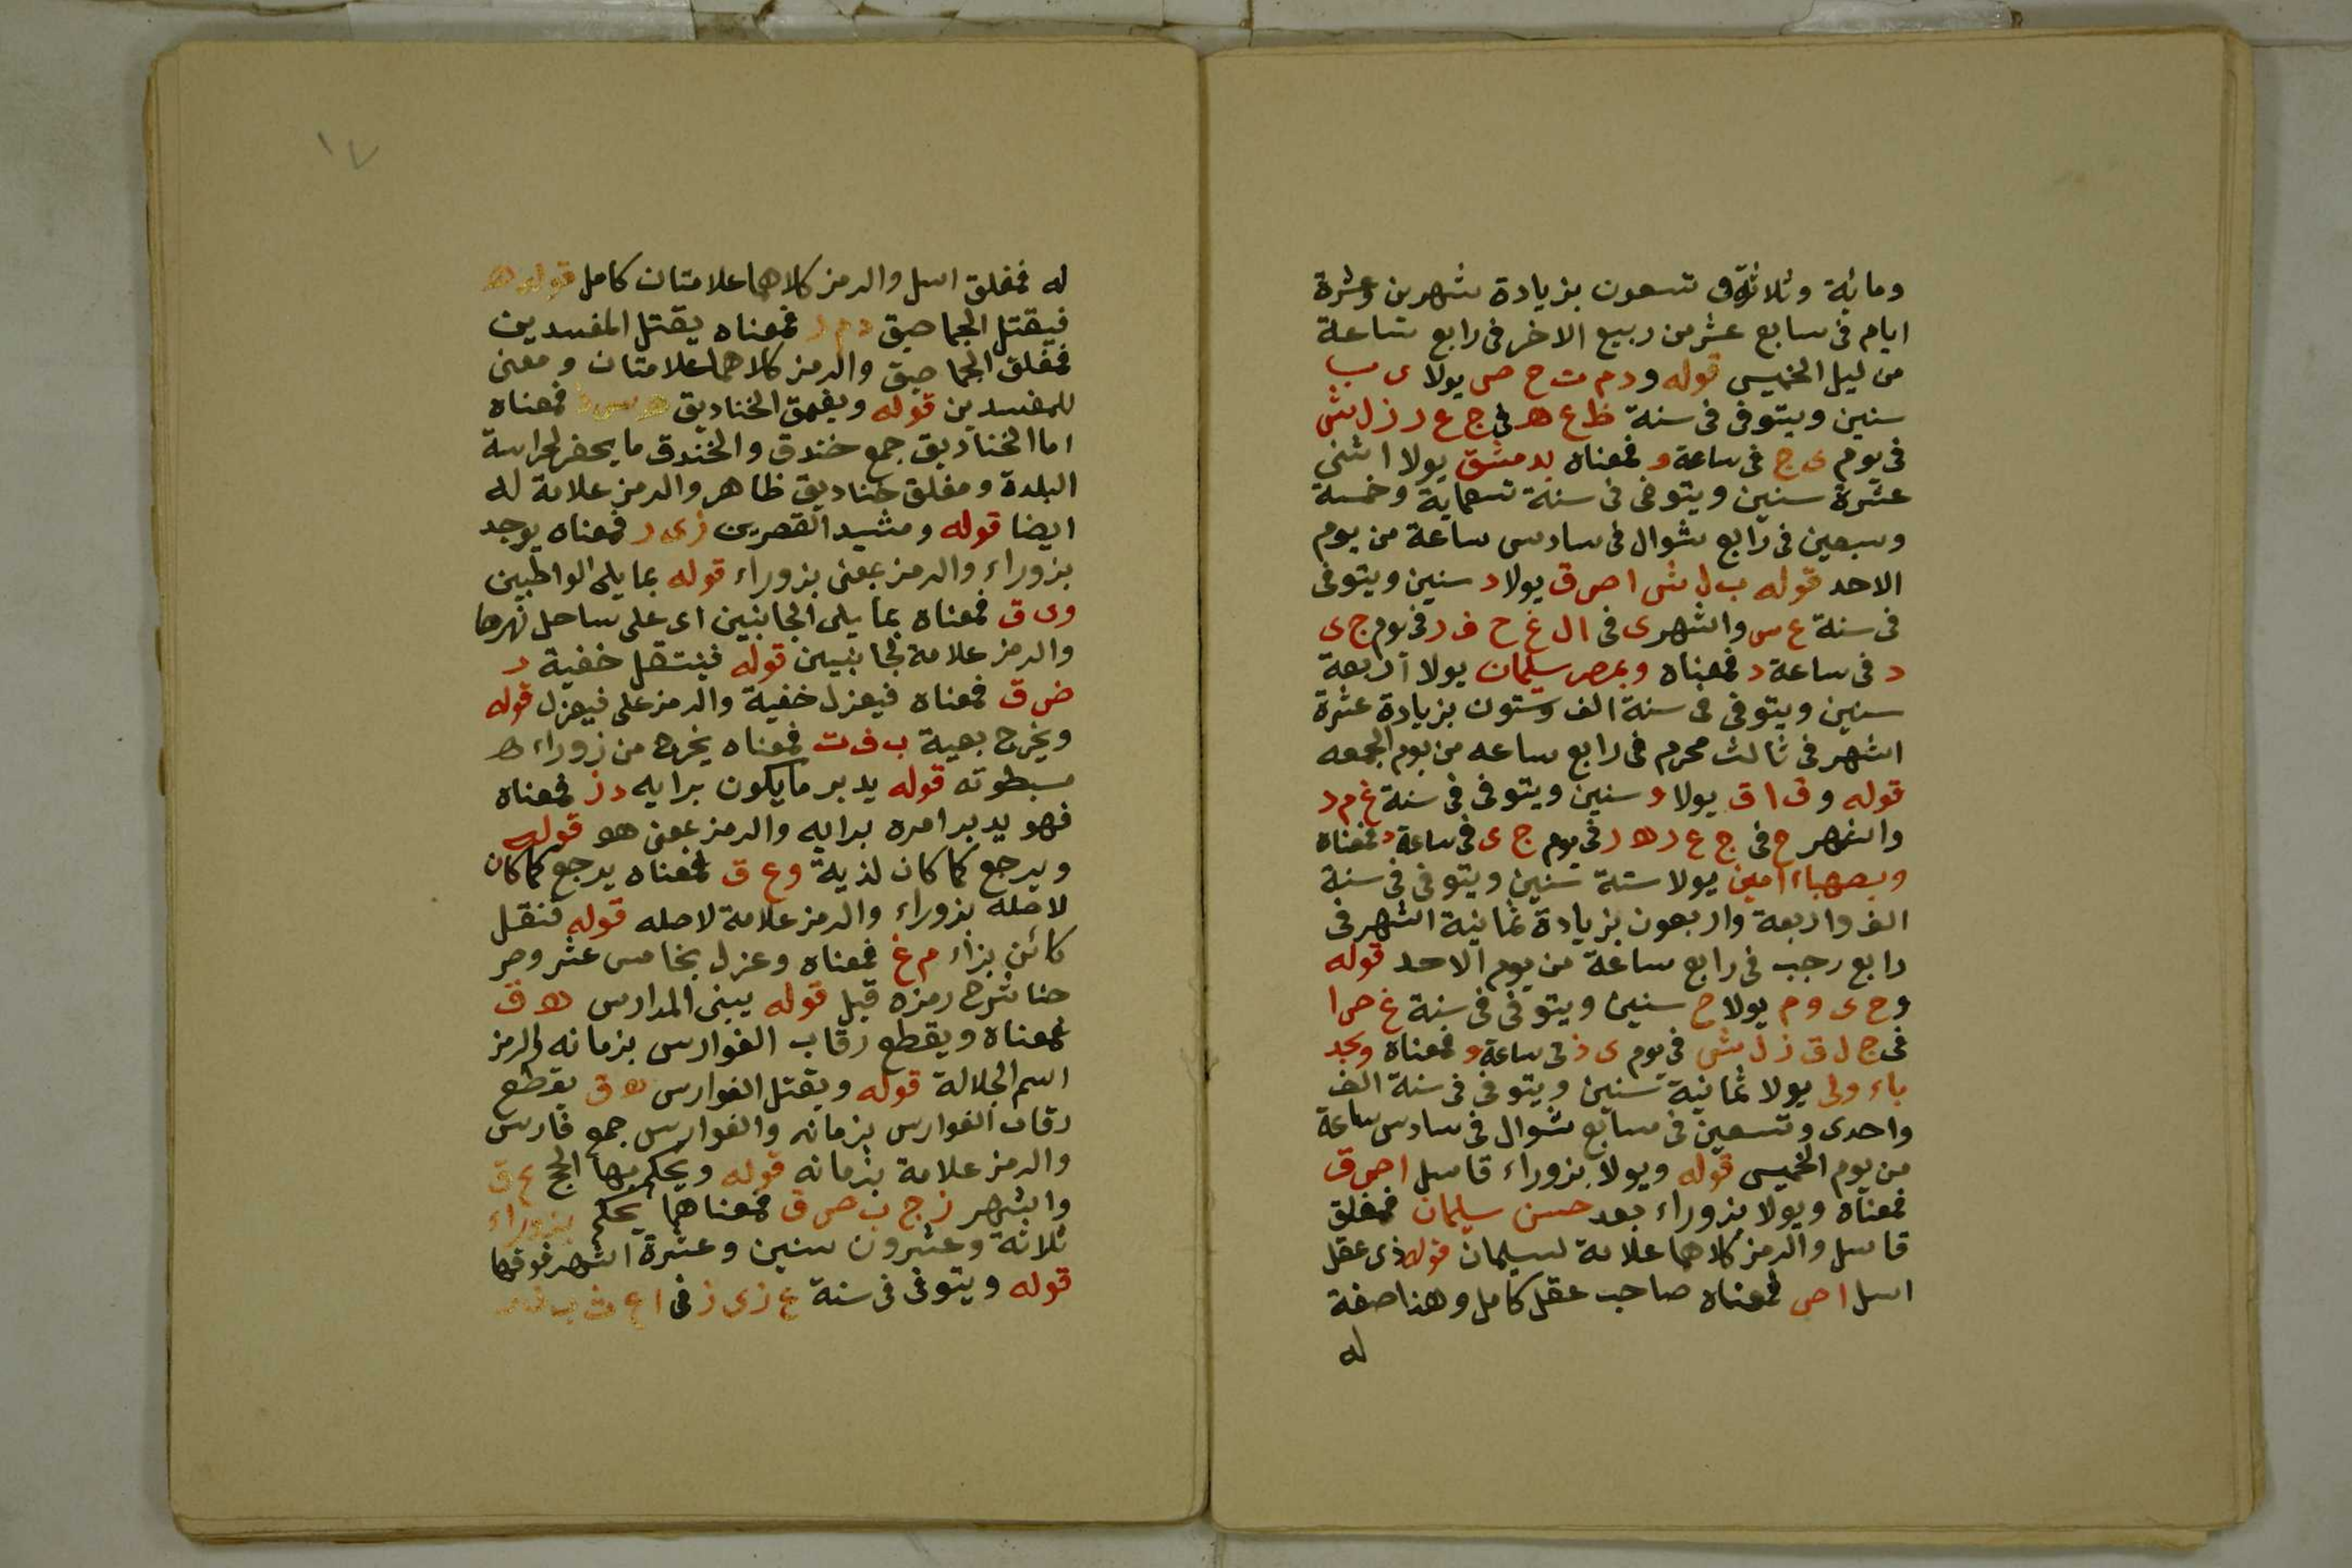 ومائة وثلاثة وتسعون بزيادة شهرين وعشرة
ايام فى سابع عشر من ربيع الاخر فى رابع ساعة
من ليل الخميس قوله و د م ت ح ص يولا ى ب
سنين ويتوفى فى سنة ظ ع ه فى ج ع ر ز ل ش
فى يوم ى ج فى ساعة و فمعناه بدمشق يولا اثنى
عشرة سنين ويتوفى فى سنة تسعماية وخمسة
وسبعين فى رابع شوال فى سادس ساعة من يوم
الاحد قوله ب ل ش ا ص ق يولا د سنين ويتوفى
فى سنة غ س والشهر ى فى ا ل غ ح ف ر فى يوم ج ى
د فى ساعة د فمعناه وبمصر سليمان يولا اربعة
سنين ويتوفى فى سنة الف وستون بزيادة عشرة
اشهر فى ثالث محرم فى رابع ساعه من يوم الجمعه
قوله و ق ا ق يولا و سنين ويتوفى فى سنة غ م د
والشهر ح فى ج ع ر ه د فى يوم ج ى فى ساعة د فمعناه
وبصهباء امين يولا ستة سنين ويتوفى فى سنة
الف واربعة واربعون بزيادة ثمانية اشهر فى
رابع رجب فى رابع ساعة من يوم الاحد قوله
و ح ى و م يولا ح سنين ويتوفى فى سنة غ ص ا
فى ج ل ق ز ل ش فى يوم ى ذ فى ساعة و فمعناه وبجد
باء ولى يولا ثمانية سنين ويتوفى فى سنة الف
واحدى وتسعين فى سابع شوال فى سادس ساعة
من يوم الخميس قوله ويولا بزوراء قاسل ا ص ق
فمعناه ويولا بزوراء بعد حسن سليمان فمغلق
قاسل والرمز كلاهما علامة لسليمان قوله ذى عقل
اسل ا ص فمعناه صاحب عقل كامل وهنا صفة
له
١٧
له فمغلق اسل والرمز كلاهما علامتان كامل قوله ه
فيقتل الجماحيق د م ر فمعناه يقتل المفسدين
فمغلق الجماحيق والرمز كلاهما علامتان ومعنى
للمفسدين قوله ويغمق الخناديق فمعناه
اما الخناديق جمع خندق والخندق ما يحفر لحراسة
البلدة ومغلق خناديق ظاهر والرمز علامة له
ايضا قوله ومشيد القصرين ز ى ر فمعناه يوجد
بزوراء والرمز بمعنى بزوراء قوله بما يلى الواطبين
و ى ق فمعناه بما يلى الجانبين اى على ساحل نهرها
والرمز علامة لجانبين قوله فينتقل خفية ر
ض ق فمعناه فيعزل خفية والرمز على فيعزل قوله
ويخرج بعية ب ف ت فمعناه يخرج من زوراء ه
مسبطوته قوله يدبر ما يكون برايه د ز فمعناه
فهو يدبر امره برايه والرمز بمعنى هو قوله
ويرجع كما كان لذية و ع ق فمعناه يرجع كما كان
لاصله بزوراء والرمز علامة لاصله قوله فنقل
كائن بزاء م غ فمعناه وعزل بخامس عشر ومر
حنا شرح رمزه قبل قوله يبنى المدارس ه ق
فمعناه ويقطع رقاب الفوارس بزمانه والرمز
اسم الجلالة قوله ويقتل الفوارس ه ق يقطع
رقاب الفوارس بزمانه والفوارس جمع فارس
والرمز علامة بزمانه قوله ويحكم بها الج ع ق
واشهر ز ج ب ص ق فمعناهما يحكم بزوراء
ثلاثة وعشرون سنين وعشرة اشهر فوقها
قوله ويتوفى فى سنة غ ز ى ز فى ا ع ث ب